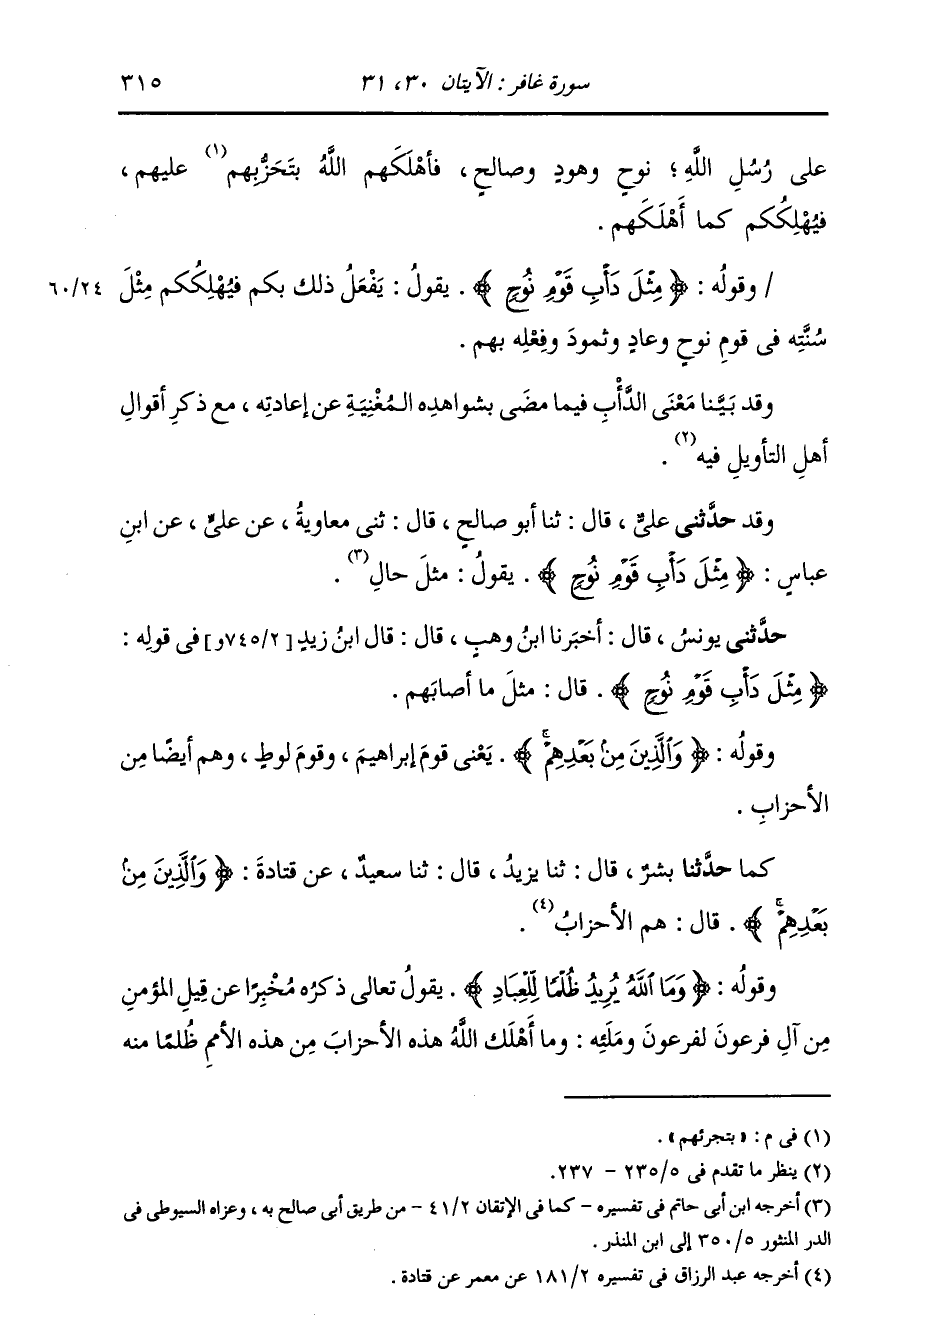 سورة غافر : الآيتان ٣٠، ٣١
٣١٥
على رُسُلِ اللَّهِ ؛ نوحٍ وهودٍ وصالحٍ ، فأهْلَكَهم اللَّهُ بتَحَزُّبِهم(١) عليهم ،
فيُهْلِكُكم كما أَهْلَكَهم .
/ وقولُه : ﴿ مِثْلَ دَأْبِ قَوْمِ نُوحٍ ﴾ . يقولُ : يَفْعَلُ ذلك بكم فيُهْلِكُكم مِثْلَ ٦٠/٢٤
سُنَّتِه فى قومِ نوحٍ وعادٍ وثمودَ وفِعْلِه بهم .
وقد بَيَّنا مَعْنَى الدَّأْبِ فيما مضَى بشواهدِه المُغْنِيَةِ عن إعادتِه ، مع ذكرِ أقوالِ
أهلِ التأويلِ فيه(٢) .
وقد حدَّثنى علىٌّ ، قال : ثنا أبو صالحٍ ، قال : ثنى معاويةُ ، عن علىٍّ ، عن ابنِ
عباسٍ : ﴿ مِثْلَ دَأْبِ قَوْمِ نُوحٍ ﴾ . يقولُ : مثلَ حالِ(٣) .
حدَّثنى يونسُ ، قال : أخبَرنا ابنُ وهبٍ ، قال : قال ابنُ زيدٍ [٧٤٥/٢و] فى قولِه :
﴿ مِثْلَ دَأْبِ قَوْمِ نُوحٍ ﴾ . قال : مثلَ ما أصابَهم .
وقولُه : ﴿ وَٱلَّذِينَ مِنۢ بَعْدِهِمْۚ ﴾ . يَعْنى قومَ إبراهيمَ ، وقومَ لوطٍ ، وهم أيضًا مِن
الأحزابِ .
كما حدَّثنا بشرٌ ، قال : ثنا يزيدُ ، قال : ثنا سعيدٌ ، عن قتادةَ : ﴿ وَٱلَّذِينَ مِنۢ
بَعْدِهِمْۚ ﴾ . قال : هم الأحزابُ(٤) .
وقولُه : ﴿ وَمَا ٱللَّهُ يُرِيدُ ظُلْمًا لِّلْعِبَادِ ﴾ . يقولُ تعالى ذكرُه مُخْبِرًا عن قِيلِ المؤمنِ
مِن آلِ فرعونَ لفرعونَ ومَلَئِه : وما أَهْلَك اللَّهُ هذه الأحزابَ مِن هذه الأممِ ظُلمًا منه
(١) فى م : « بتجرئهم » .
(٢) ينظر ما تقدم فى ٢٣٥/٥ - ٢٣٧.
(٣) أخرجه ابن أبى حاتم فى تفسيره - كما فى الإتقان ٤١/٢ - من طريق أبى صالح به ، وعزاه السيوطى فى
الدر المنثور ٣٥٠/٥ إلى ابن المنذر .
(٤) أخرجه عبد الرزاق فى تفسيره ١٨١/٢ عن معمر عن قتادة .